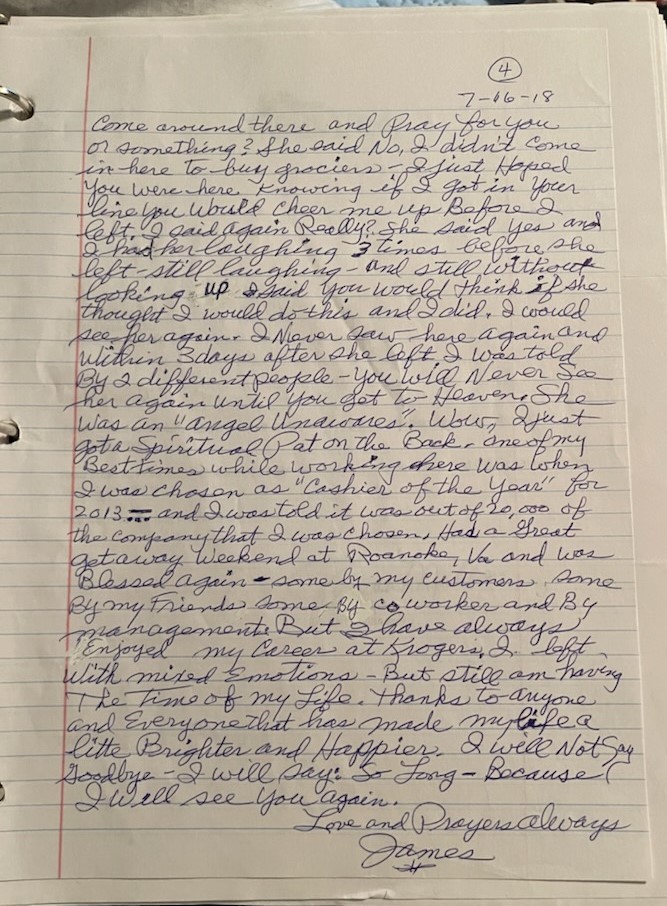 4
7-16-18
Come around there and Pray for you
or something? She said No, I didn't come
in here to buy grociers - I just Hoped
You were here Knowing if I got in Your
line you Would cheer me up Before I
left. I said again Really? She said yes and
I had her laughing 3 times before she
left - still laughing - and still without
looking up I said You would think if she
thought I would do this and I did. I would
see her again. I Never saw here again and
Within 3 days after she left I was told
By 2 different people - You will Never See
her again until you get to Heaven. She
was an "angel Unawares". Wow, I just
got a Spiritual Pat on the Back. One of my
Best Times while working there was when
I was chosen as "Cashier of the Year" for
2013 and I was told it was out of 20,000 of
the company that I was chosen, Had a Great
getaway Weekend at Roanoke, Va and was
Blessed again - some by my customers some
By my Friends some By coworker and By
management. But I have always
Enjoyed my Career at Krogers. I left
With mixed Emotions - But still am having
The Time of my Life. Thanks to anyone
and Everyone that has made my life a
litte Brighter and Happier. I will Not Say
Goodbye - I will say: So Long - Because
I will see you again.
Love and Prayers always
James